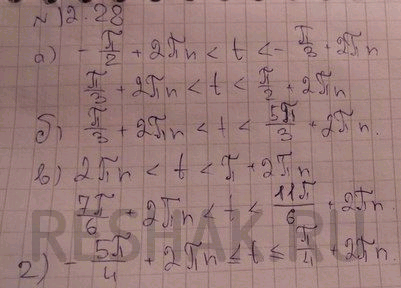 12.28
а) - π/2 + 2πn < t < - π/3 + 2πn
π/3 + 2πn < t < π/2 + 2πn
б) π/3 + 2πn < t < 5π/3 + 2πn.
в) 2πn < t < π + 2πn
7π/6 + 2πn < t < 11π/6 + 2πn.
г) - 5π/4 + 2πn ≤ t ≤ π/4 + 2πn.
RESHAK.RU